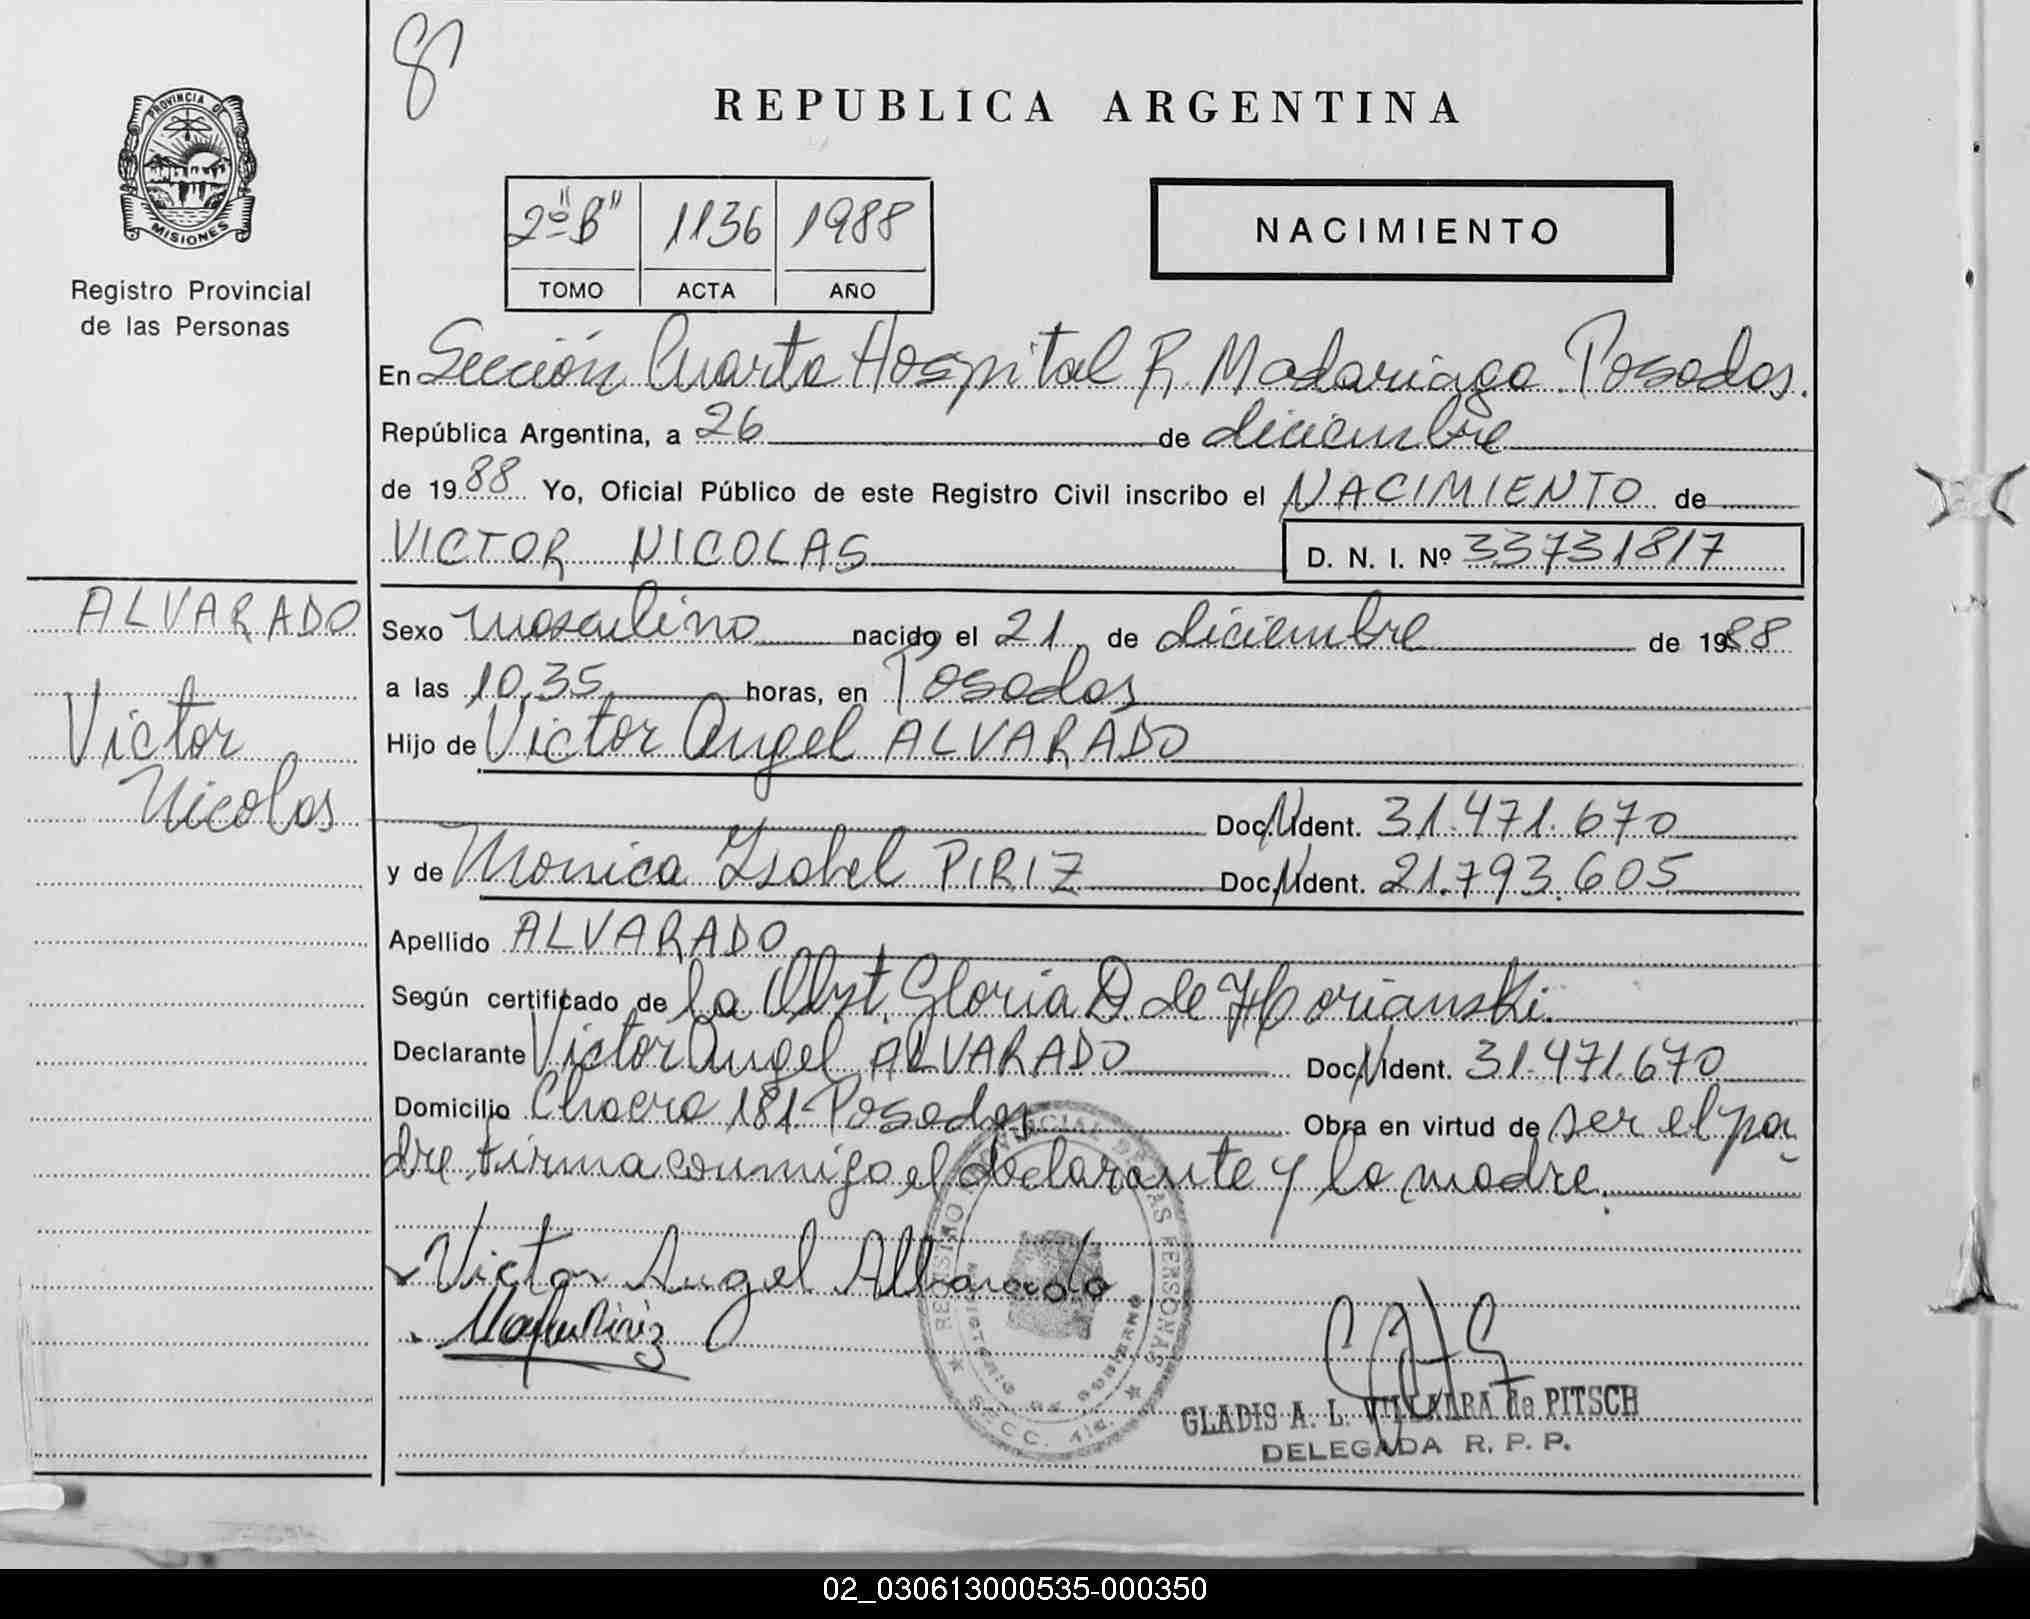 8
PROVINCIA DE
MISIONES
Registro Provincial
de las Personas
REPUBLICA ARGENTINA
2º "B" 1136 1988
TOMO ACTA AÑO
NACIMIENTO
En Sección Cuarta Hospital R. Madariaga Posadas.
República Argentina, a 26 de diciembre
de 1988 Yo, Oficial Público de este Registro Civil inscribo el NACIMIENTO de
VICTOR NICOLAS D. N. I. Nº 33731817
ALVARADO
Victor
Nicolas
Sexo masculino nacido el 21 de diciembre de 1988
a las 10,35 horas, en Posadas
Hijo de Victor Angel ALVARADO
Doc. N. Ident. 31.471.670
y de Monica Isabel PIRIZ Doc. N. Ident. 21.793.605
Apellido ALVARADO
Según certificado de la Obst. Gloria D. de Horianski.
Declarante Victor Angel ALVARADO Doc. N. Ident. 31.471.670
Domicilio Chacra 181-Posadas Obra en virtud de ser el pa-
dre firma conmigo el declarante y la madre.
Victor Angel Albarado
Piriz
REGISTRO PROVINCIAL DE LAS PERSONAS
MINISTERIO DE GOBIERNO
SECC. 4ta.
GLADIS A. L. VILLALBA de PITSCH
DELEGADA R. P. P.
02_030613000535-000350